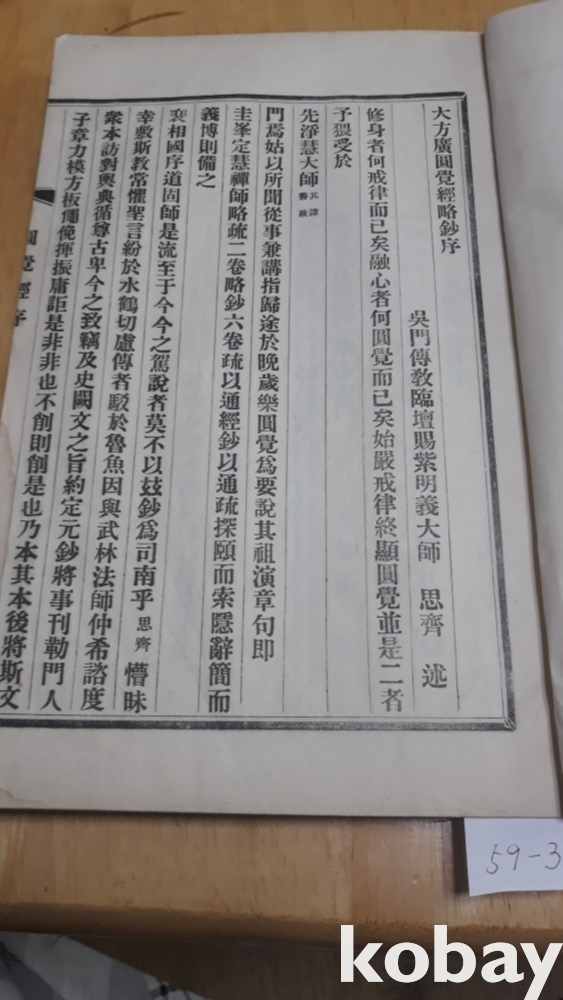 大方廣圓覺經略鈔序
吳門傳敎臨壇賜紫明義大師 思齊 述
修身者何戒律而已矣融心者何圓覺而已矣始嚴戒律終顯圓覺並是二者
予猥受於
先淨慧大師其諱
門焉姑以所聞從事兼講指歸途於晚歲樂圓覺爲要說其祖演章句即
圭峯定慧禪師略疏二卷略鈔六卷疏以通經鈔以通疏探賾而索隱辭簡而
義博則備之
裴相國序道固師是流至于今今之駕說者莫不以玆鈔爲司南乎思齊懵昧
幸敷斯敎常懼聖言紛於水鶴切慮傳者駁於魯魚因與武林法師仲希諮度
衆本訪對輿典循尊古卑今之致竊及史闕文之旨約定元鈔將事刊勒門人
子章力模方板僶俛揮振庸詎是非非也不削則削是也乃本其本後將斯文
圓覺經序
59-3
kobay